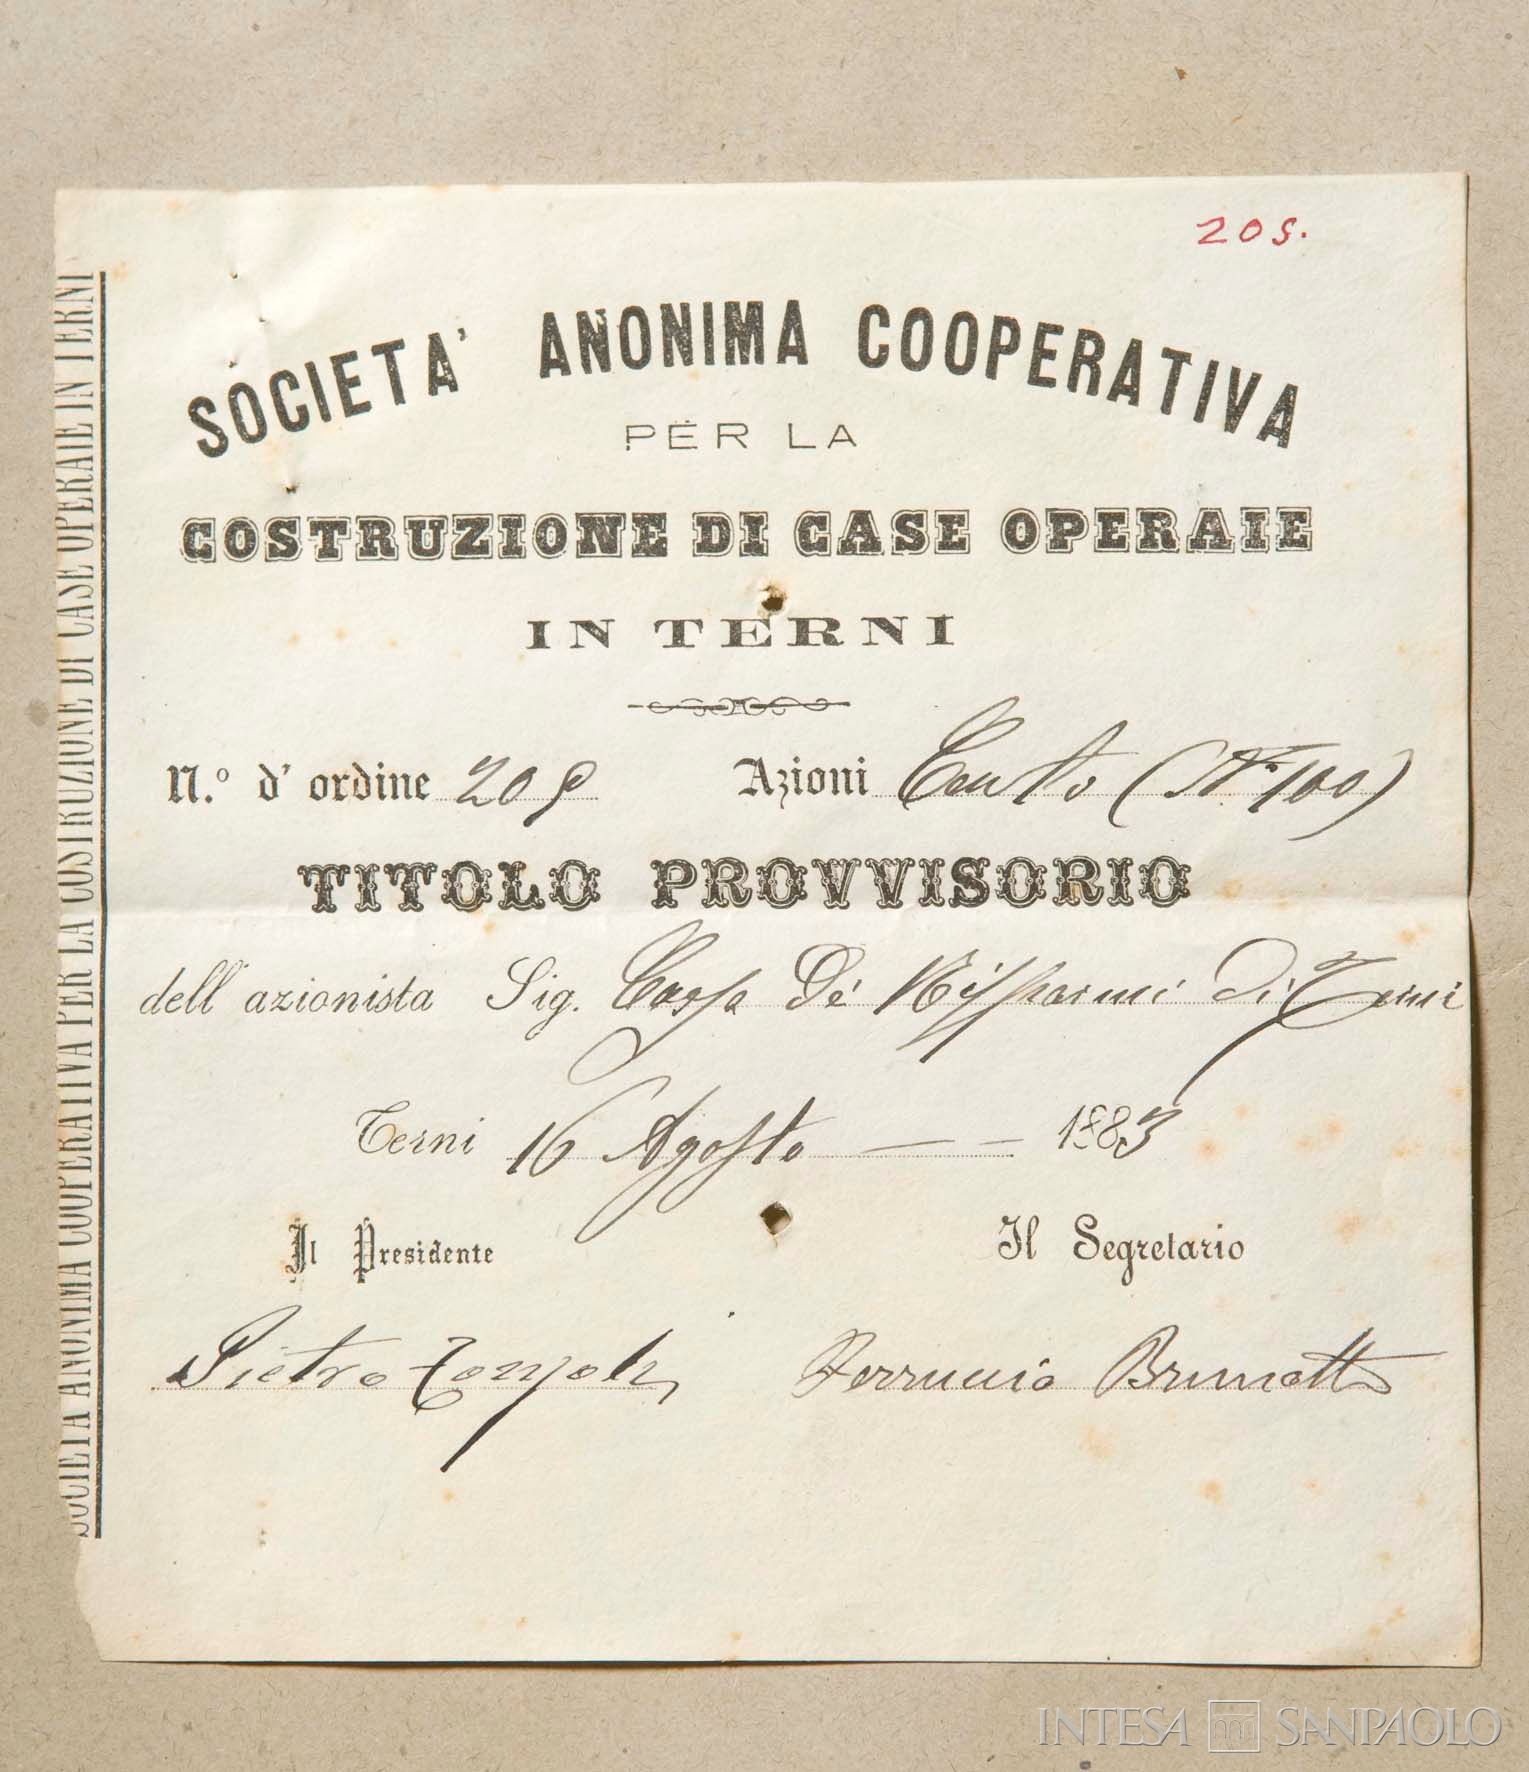 205.
SOCIETA' ANONIMA COOPERATIVA
PER LA
COSTRUZIONE DI CASE OPERAIE
IN TERNI
N.º d' ordine 205 Azioni Cento (Nº 100)
TITOLO PROVVISORIO
dell' azionista Sig. Cassa De' Risparmi di Terni
Terni 16 Agosto — — 1883
Il Presidente Il Segretario
Pietro Ferruccio Brunetti
SOCIETÀ ANONIMA COOPERATIVA PER LA COSTRUZIONE DI CASE OPERAIE IN TERNI
INTESA SANPAOLO